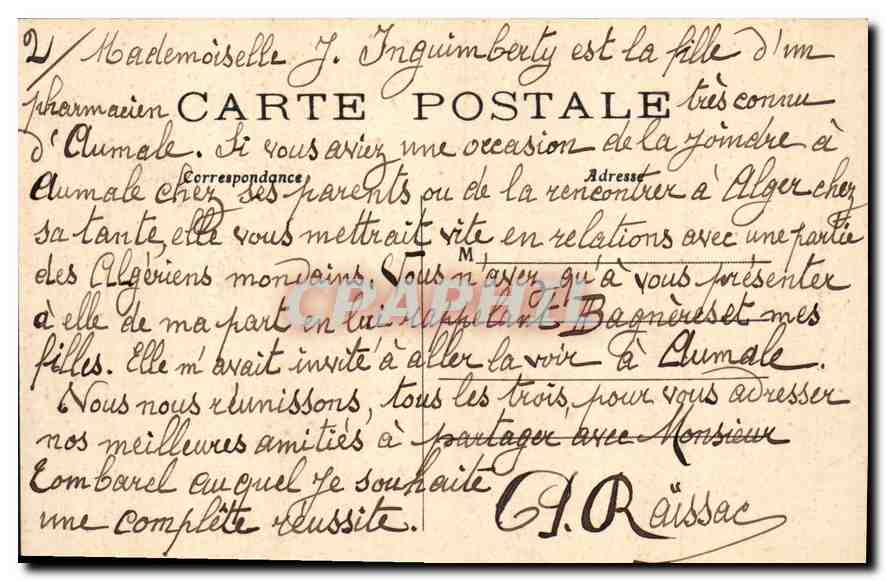 2/ Mademoiselle J. Inguimberty est la fille d'un
pharmacien CARTE POSTALE très connu
d'Aumale. Si vous aviez une occasion de la joindre à
Correspondance Adresse
Aumale chez ses parents ou de la rencontrer à Alger chez
sa tante, elle vous mettrait vite en relations avec une partie
M
des Algériens mondains. Vous n'avez qu'à vous présenter
à elle de ma part en lui rappelant Bagnères et mes
filles. Elle m'avait invité à aller la voir à Aumale.
Nous nous réunissons, tous les trois, pour vous adresser
nos meilleures amitiés à partager avec Monsieur
Tombarel auquel je souhaite
une complète réussite. Raïssac